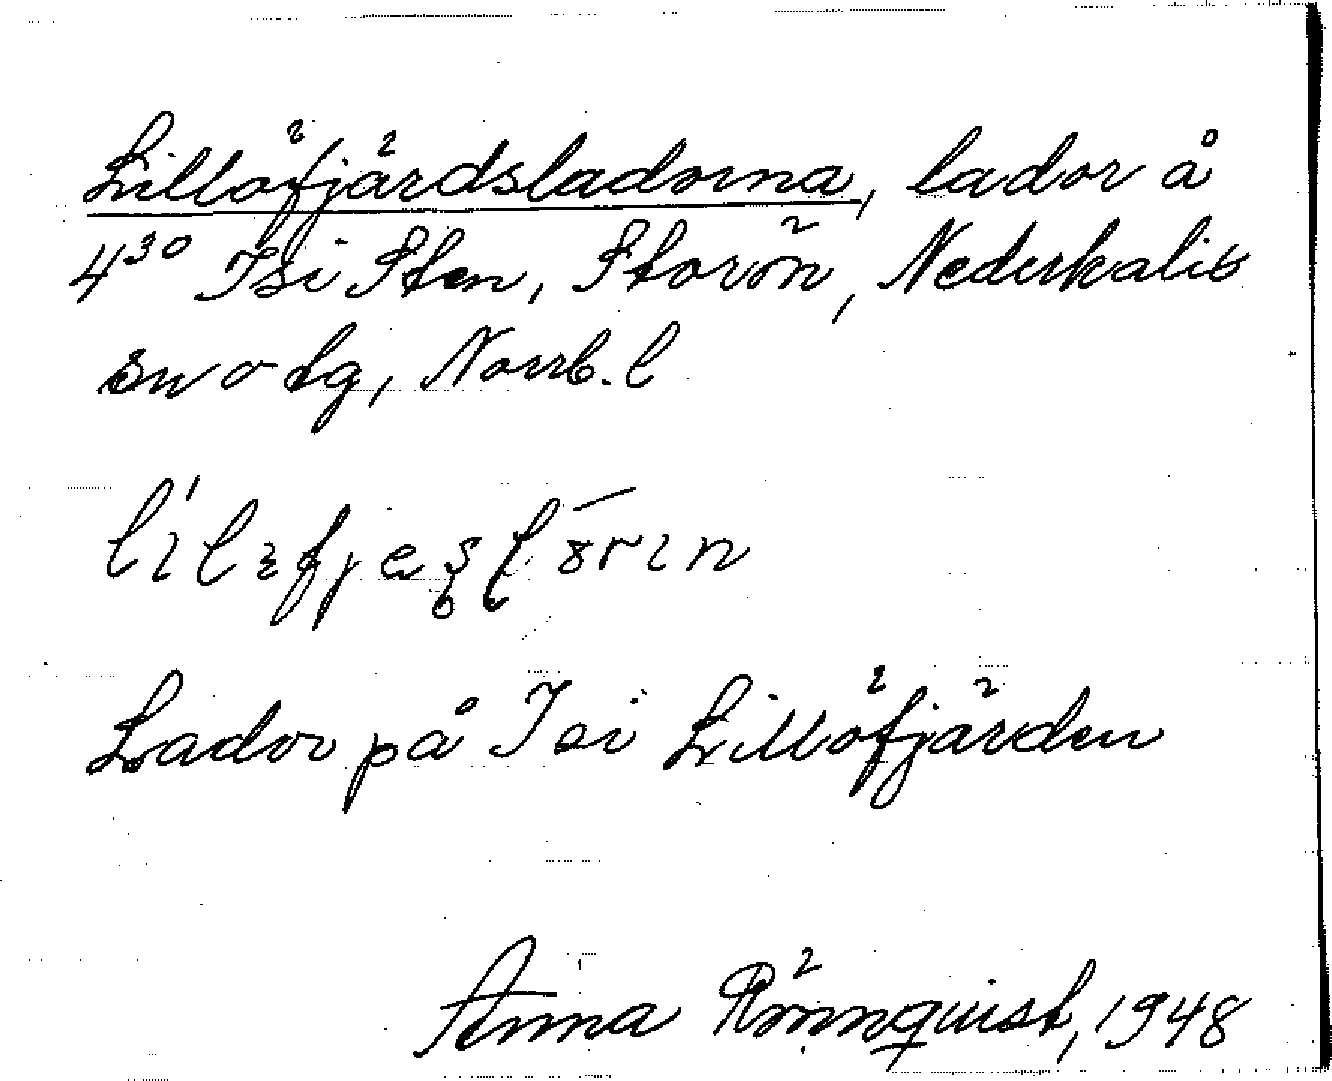 Lillöfjärdsladorna, lador å
4³⁰ Isi Sten, Storön, Nederkalix
sn o tg, Norrb. l
Lador på Isi Lillöfjärden
Anna Rönnquist, 1948